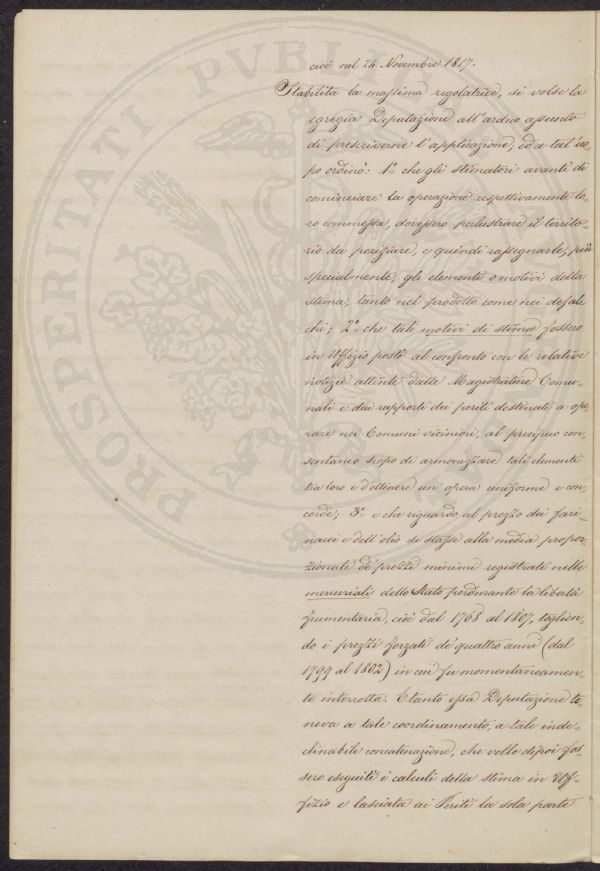 cioè nel 24 Novembre 1817.
Stabilita la massima regolatrice, si volse la
egregia Deputazione all'arduo assunto
di prescriverne l'applicazione, ed a tal uo,
po ordinò: 1.° che gli stimatori avanti di
cominciare la operazione respettivamente lo,
ro commessa, dovessero perlustrare il territo,
rio da periziare, e quindi rassegnarle, più
specialmente, gli elementi o motivi della
stima, tanto nel prodotto come nei defal,
chi; 2.° che tali motivi di stima fossero
in Uffizio posti al confronto con le relative
notizie attinte dalle Magistrature Comu,
nali e dai rapporti dei periti destinati a ope,
rare nei Comuni viciniori, al precipuo con,
sentaneo scopo di armonizzare tali elementi
tra loro e d'ottenere un'opera uniforme e con,
corde; 3.° e che riguardo al prezzo dei fari,
nacei e dell'olio se stasse alla media propor,
zionale de' prezzi minimi registrati nelle
mercuriali dello Stato perdurante la libertà
frumentaria, cioè dal 1768 al 1807, toglien,
do i prezzi forzati de' quattro anni (dal
1799 al 1802) in cui fu momentaneamen,
te interrotta. E tanto essa Deputazione te
neva a tale coordinamento, a tale inde,
clinabile concatenazione, che volle dipoi fos,
sero eseguiti i calculi della stima in Uf,
fizio e lasciata ai Periti la sola parte
PROSPERITATI PVBLIC